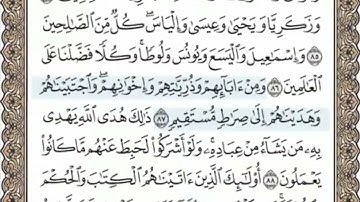 وَزَكَرِيَّا وَيَحْيَىٰ وَعِيسَىٰ وَإِلْيَاسَ ۖ كُلٌّ مِّنَ ٱلصَّٰلِحِينَ
٨٥ وَإِسْمَٰعِيلَ وَٱلْيَسَعَ وَيُونُسَ وَلُوطًا ۚ وَكُلًّا فَضَّلْنَا عَلَى
ٱلْعَٰلَمِينَ ٨٦ وَمِنْ ءَابَآئِهِمْ وَذُرِّيَّٰتِهِمْ وَإِخْوَٰنِهِمْ ۖ وَٱجْتَبَيْنَٰهُمْ
وَهَدَيْنَٰهُمْ إِلَىٰ صِرَٰطٍ مُّسْتَقِيمٍ ٨٧ ذَٰلِكَ هُدَى ٱللَّهِ يَهْدِى
بِهِۦ مَن يَشَآءُ مِنْ عِبَادِهِۦ ۚ وَلَوْ أَشْرَكُوا۟ لَحَبِطَ عَنْهُم مَّا كَانُوا۟
يَعْمَلُونَ ٨٨ أُو۟لَٰٓئِكَ ٱلَّذِينَ ءَاتَيْنَٰهُمُ ٱلْكِتَٰبَ وَٱلْحُكْمَ